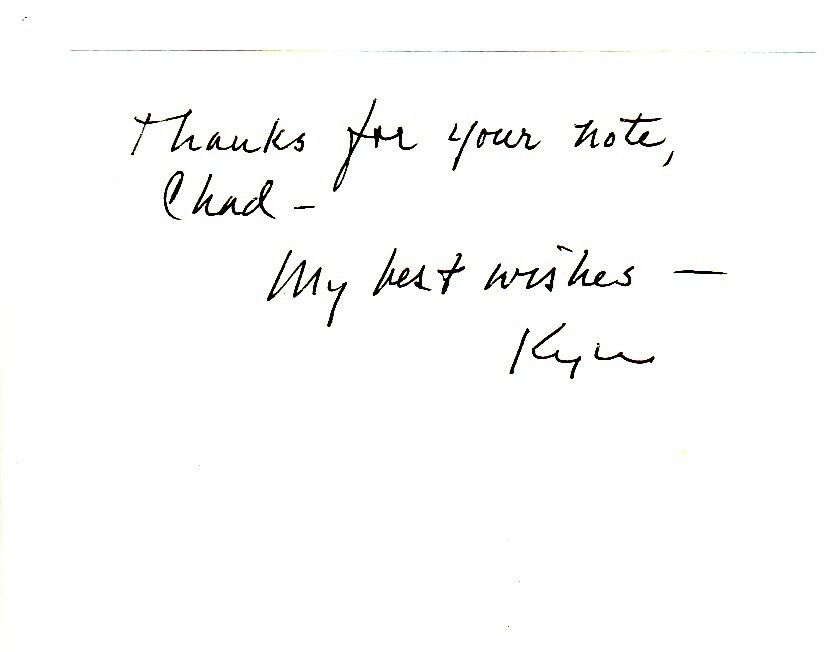 Thanks for your note,
Chad –
My best wishes —